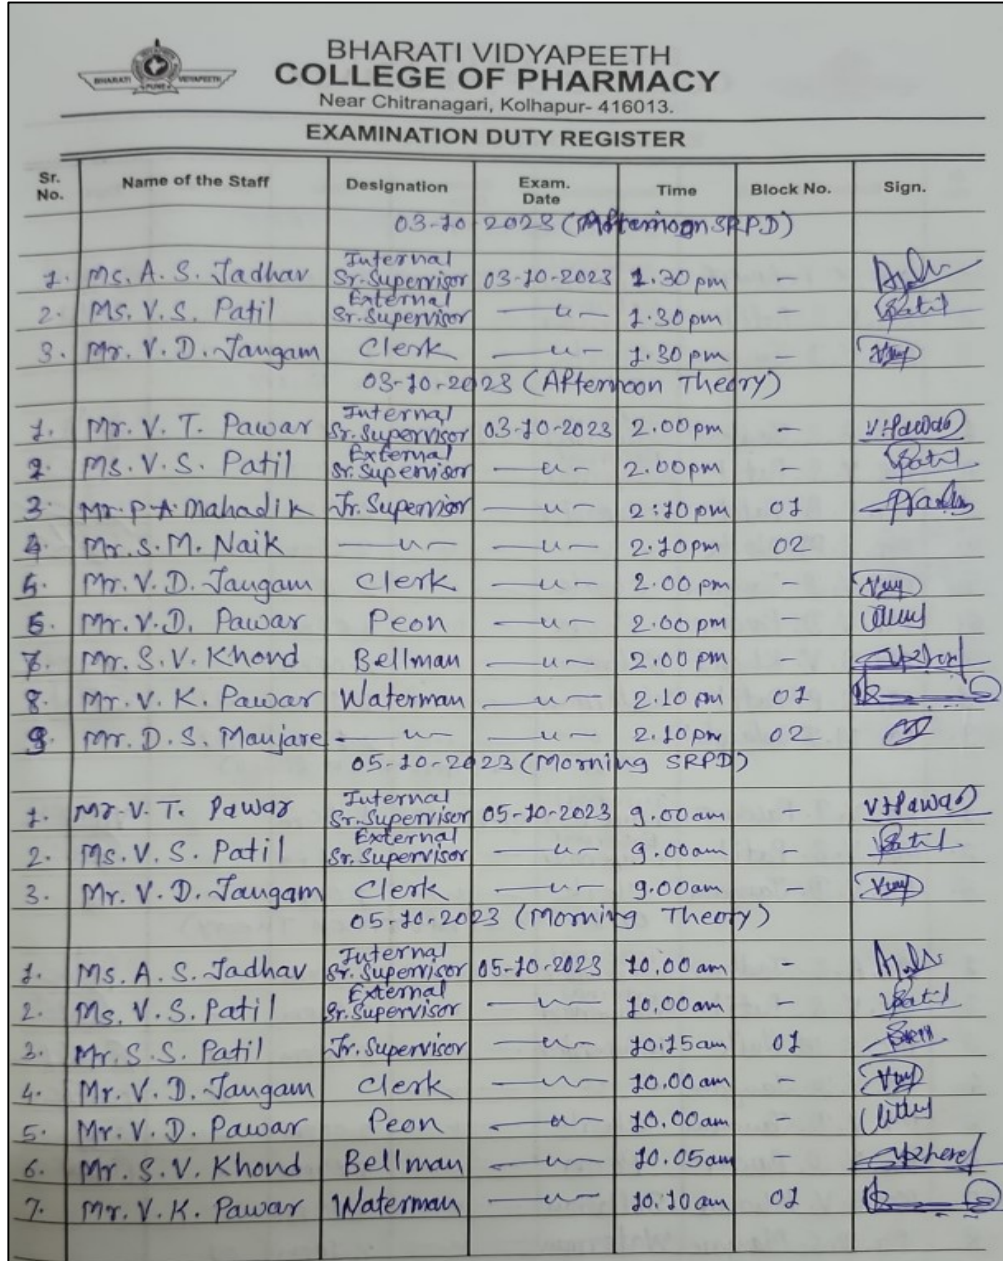 BHARATI VIDYAPEETH
BHARATI VIDYAPEETH
COLLEGE OF PHARMACY
Near Chitranagari, Kolhapur- 416013.
EXAMINATION DUTY REGISTER
Sr. No. Name of the Staff Designation Exam. Date Time Block No. Sign.
03-10-2023 (Afternoon SRPD)
1. Ms. A. S. Jadhav Internal Sr. Supervisor 03-10-2023 1.30 pm -
2. Ms. V. S. Patil External Sr. Supervisor —〃— 1.30 pm - Patil
3. Mr. V. D. Jangam Clerk —〃— 1.30 pm -
03-10-2023 (Afternoon Theory)
1. Mr. V. T. Pawar Internal Sr. Supervisor 03-10-2023 2.00 pm - VTPawar
2. Ms. V. S. Patil External Sr. Supervisor —〃— 2.00 pm - Patil
3. Mr. P. A. Mahadik Jr. Supervisor —〃— 2:10 pm 01
4. Mr. S. M. Naik —〃— —〃— 2.10 pm 02
5. Mr. V. D. Jangam Clerk —〃— 2.00 pm -
6. Mr. V. D. Pawar Peon —〃— 2.00 pm -
7. Mr. S. V. Khond Bellman —〃— 2.00 pm -
8. Mr. V. K. Pawar Waterman —〃— 2.10 pm 01
9. Mr. D. S. Manjare —〃— —〃— 2.10 pm 02
05-10-2023 (Morning SRPD)
1. Mr. V. T. Pawar Internal Sr. Supervisor 05-10-2023 9.00 am - VTPawar
2. Ms. V. S. Patil External Sr. Supervisor —〃— 9.00 am - Patil
3. Mr. V. D. Jangam Clerk —〃— 9.00 am -
05-10-2023 (Morning Theory)
1. Ms. A. S. Jadhav Internal Sr. Supervisor 05-10-2023 10.00 am -
2. Ms. V. S. Patil External Sr. Supervisor —〃— 10.00 am - Patil
3. Mr. S. S. Patil Jr. Supervisor —〃— 10.15 am 01
4. Mr. V. D. Jangam Clerk —〃— 10.00 am -
5. Mr. V. D. Pawar Peon —〃— 10.00 am -
6. Mr. S. V. Khond Bellman —〃— 10.05 am -
7. Mr. V. K. Pawar Waterman —〃— 10.10 am 01